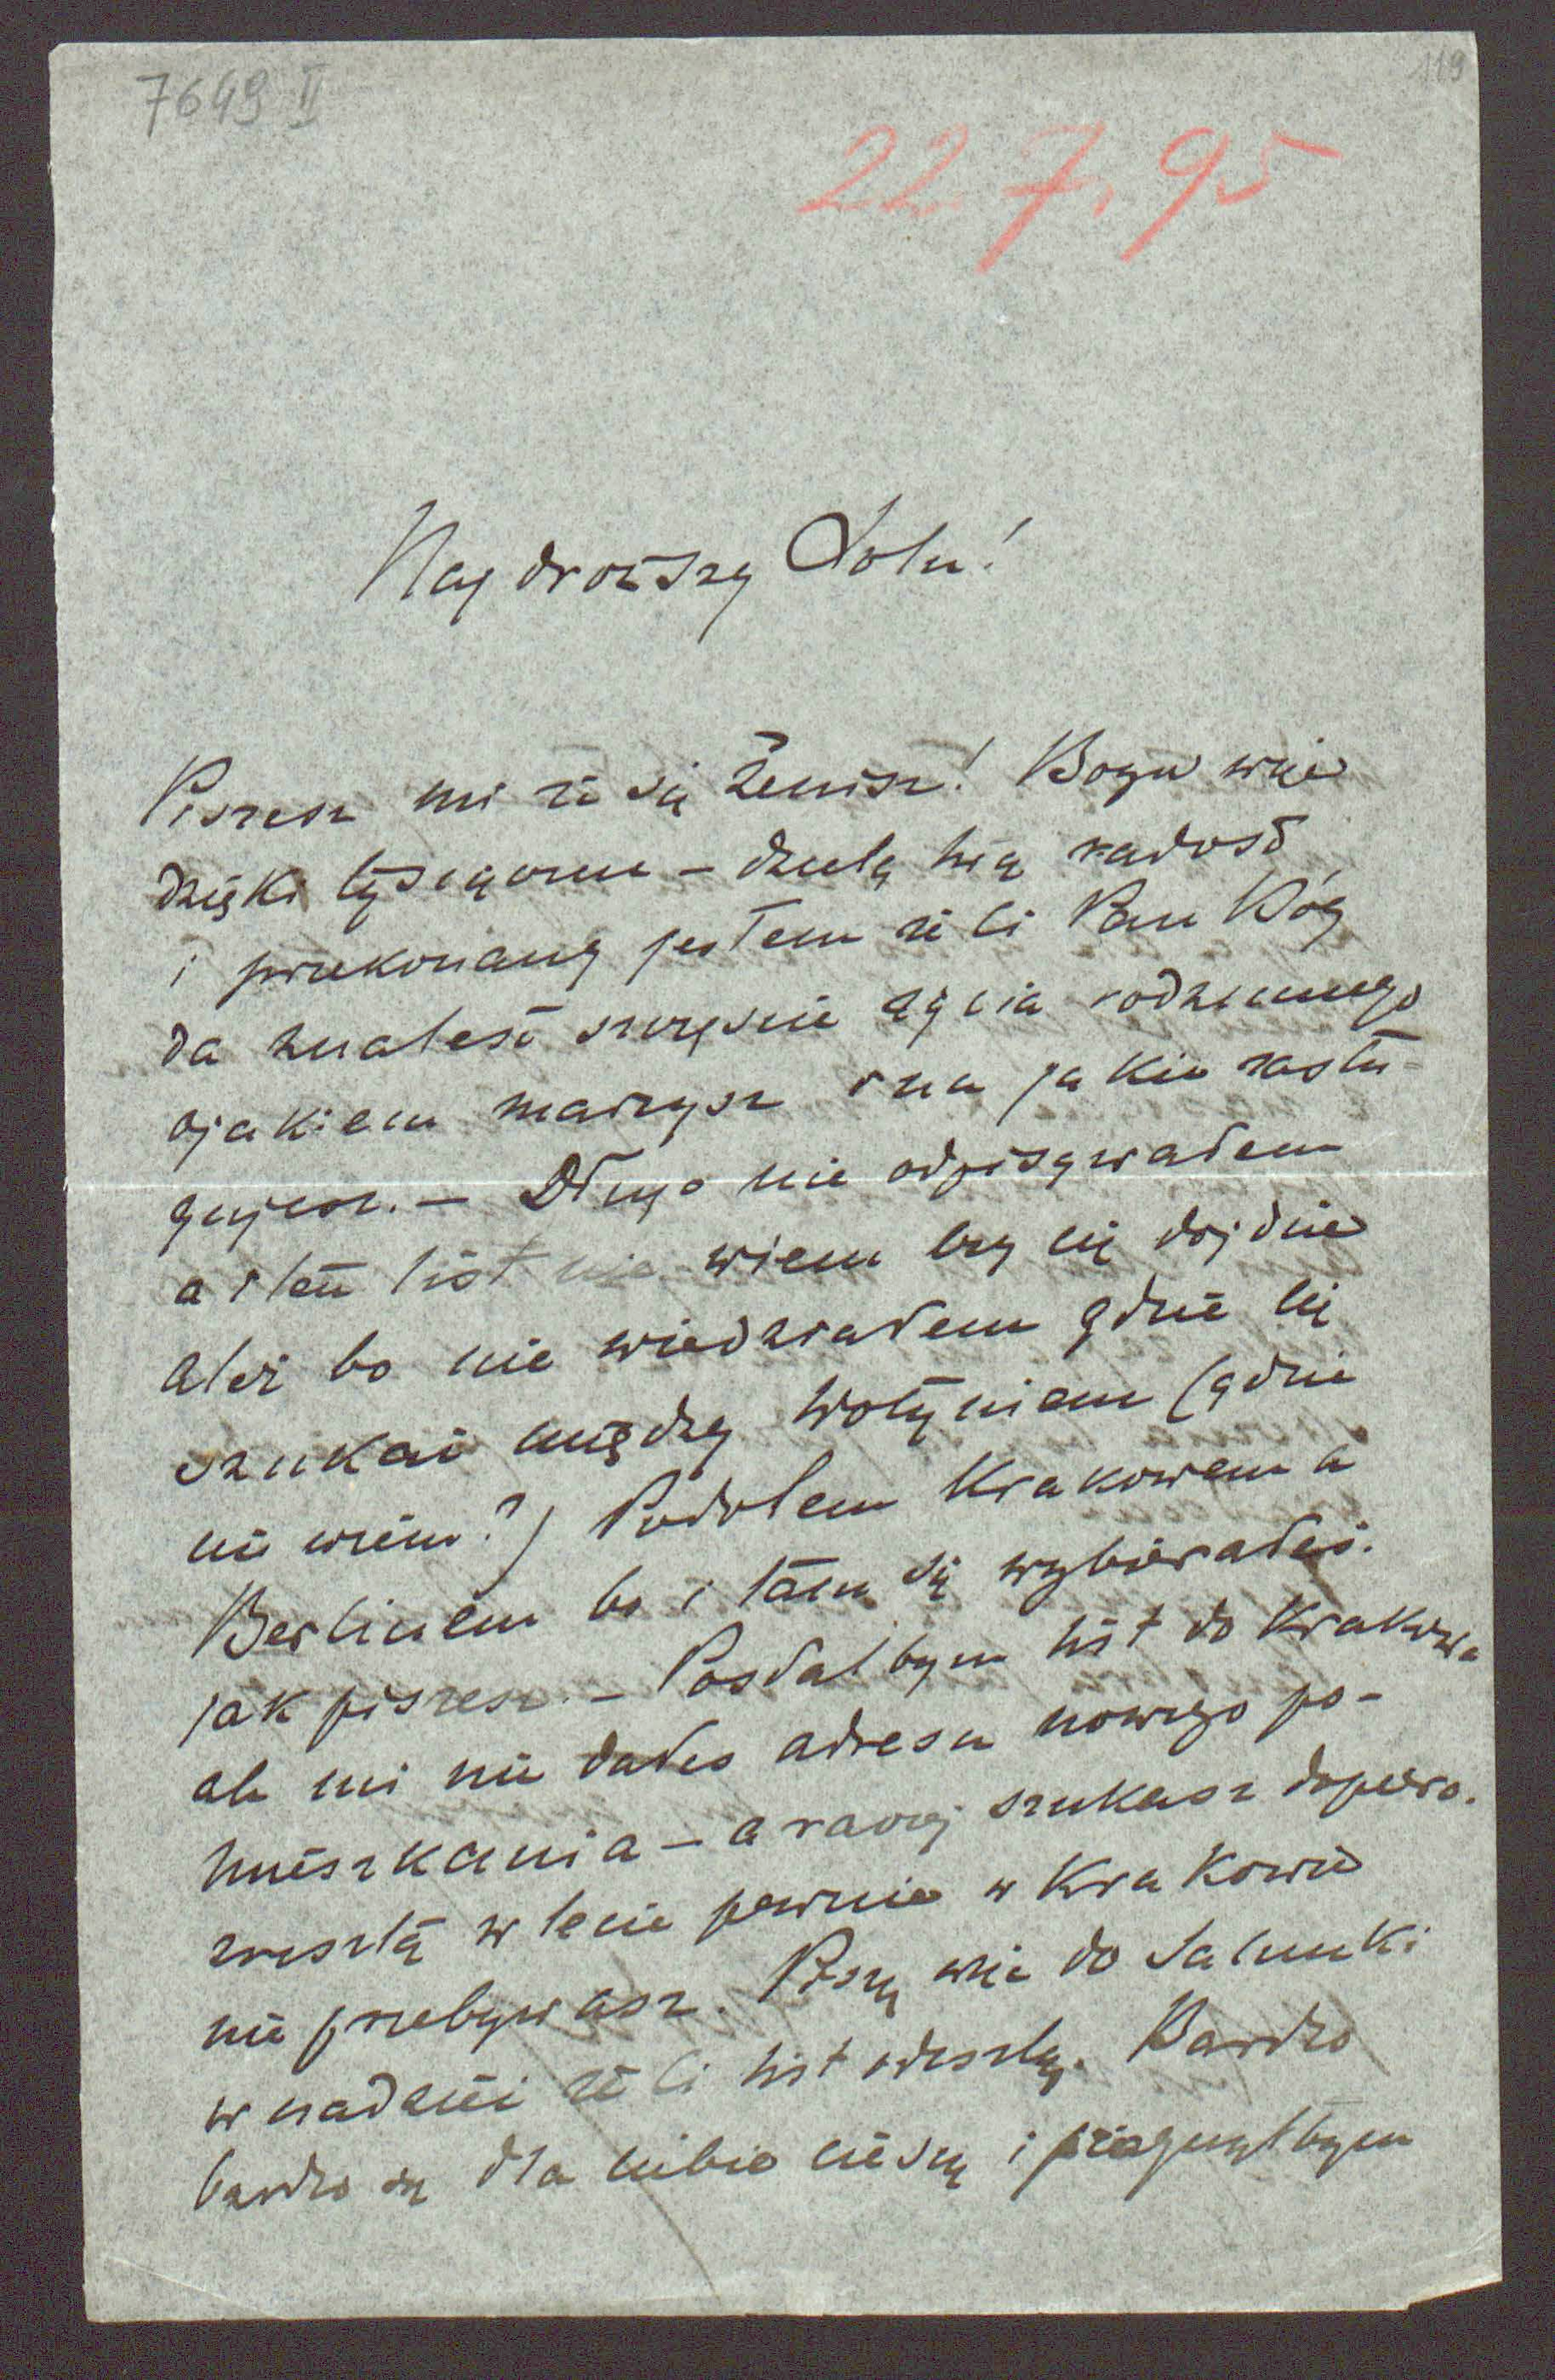 7649 II
119
22 7. 95
Najdroższy Lolu!
Piszesz mi że się żenisz! Bogu więc
dzięki tysiączne – dzielę twą radość
i przekonany jestem że Ci Pan Bóg
da znaleść szczęście życia rodzinnego
o jakiem marzysz i na jakie zasłu-
gujesz. – Długo nie odpisywałem
a i ten list nie wiem czy cię dojdzie
ale bo nie wiedziałem gdzie cię
szukać między Wołyniem (gdzie
nie wiem?) Podolem Krakowem a
Berlinem bo i tam się wybierałeś.
jak piszesz. – Posłałbym list do Krakowa
ale mi nie dałeś adresu nowego po-
mieszkania – a raczej szukasz dopiero.
zresztą w lecie pewnie w Krakowie
nie przebywasz. Piszę więc do
w nadziei że Ci list odeszlą. Bardzo
bardzo się dla ciebie cieszę i pragnąłbym